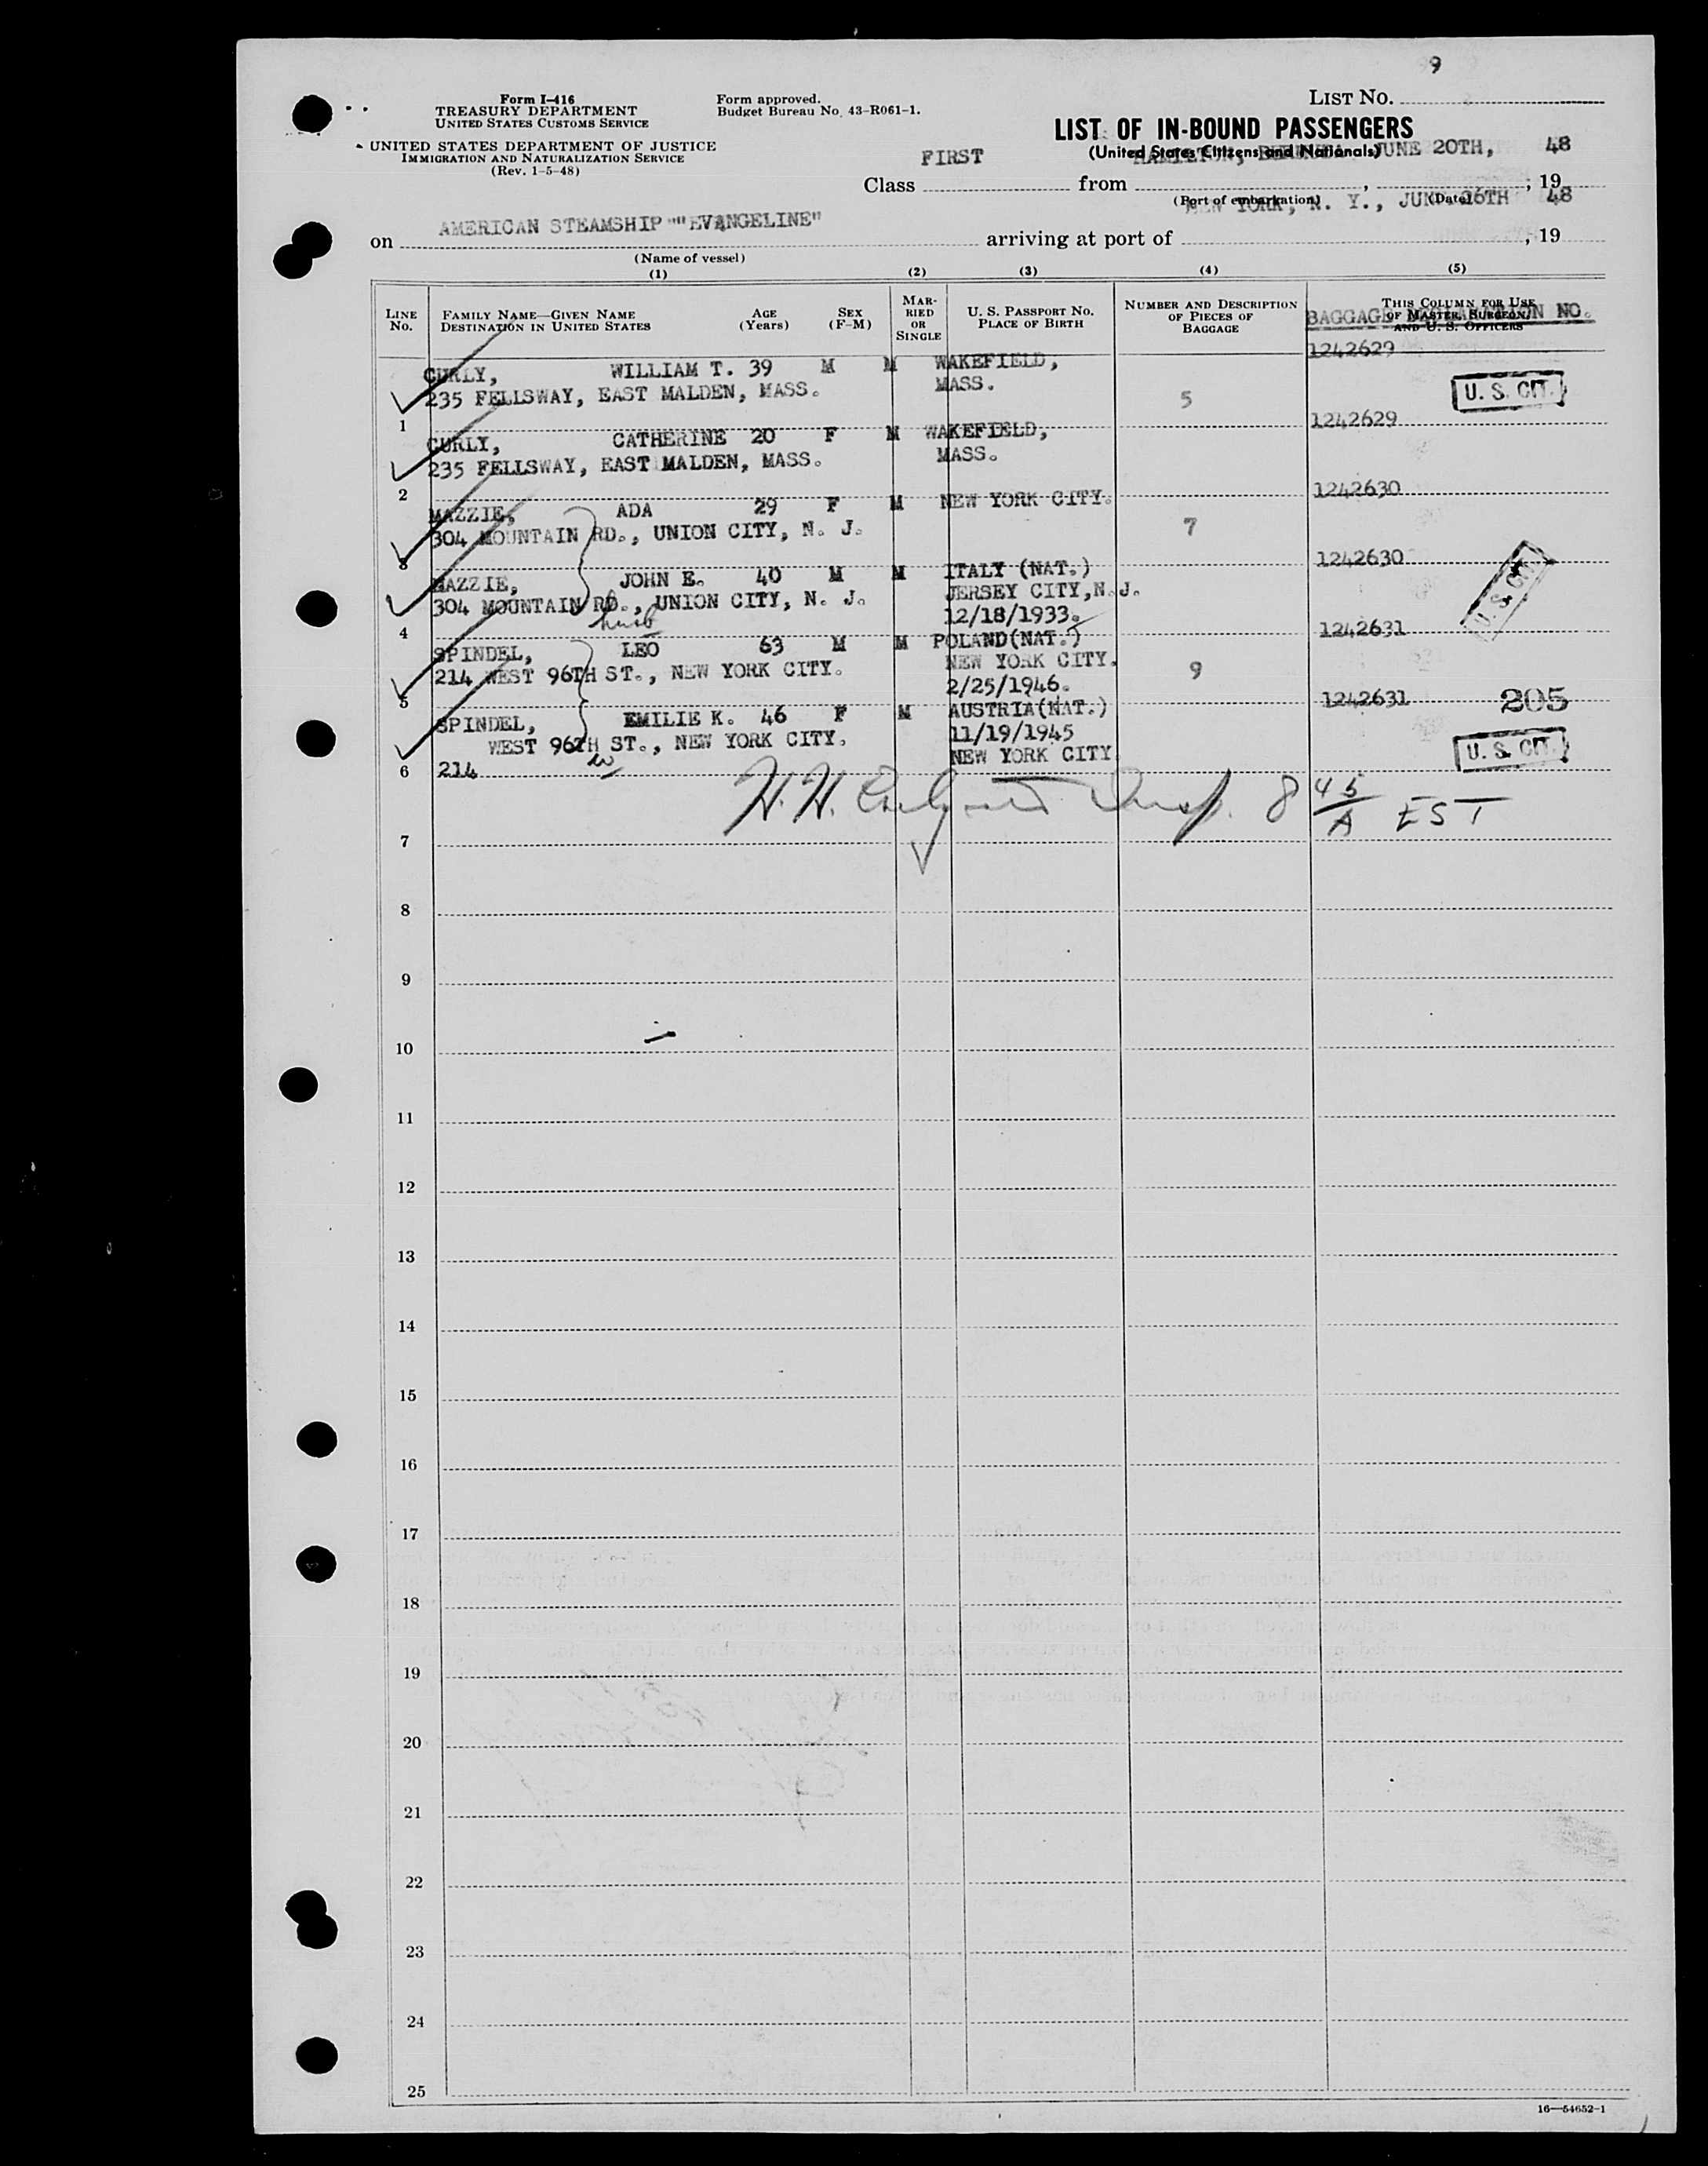 9
Form I-416
TREASURY DEPARTMENT
UNITED STATES CUSTOMS SERVICE
Form approved.
Budget Bureau No. 43-R061-1.
LIST NO.
UNITED STATES DEPARTMENT OF JUSTICE
IMMIGRATION AND NATURALIZATION SERVICE
(Rev. 1-5-48)
LIST OF IN-BOUND PASSENGERS
(United States Citizens and Nationals)
FIRST HAMILTON, JUNE 20TH, 48
Class from , , 19
(Port of embarkation) (Date)
NEW YORK, N. Y., JUNE 26TH 48
AMERICAN STEAMSHIP ""EVANGELINE"
on arriving at port of , 19
(Name of vessel)
(1) (2) (3) (4) (5)
LINE No. FAMILY NAME—GIVEN NAME DESTINATION IN UNITED STATES AGE (Years) SEX (F-M) MARRIED OR SINGLE U. S. PASSPORT NO. PLACE OF BIRTH NUMBER AND DESCRIPTION OF PIECES OF BAGGAGE THIS COLUMN FOR USE OF MASTER, SURGEON, AND U. S. OFFICERS
BAGGAGE NO.
1242629
CURLY, WILLIAM T. 39 M M WAKEFIELD,
235 FELLSWAY, EAST MALDEN, MASS. MASS. 5 U. S. CIT.
1 1242629
CURLY, CATHERINE 20 F M WAKEFIELD,
235 FELLSWAY, EAST MALDEN, MASS. MASS.
2 1242630
MAZZIE, ADA 29 F M NEW YORK CITY.
304 MOUNTAIN RD., UNION CITY, N. J. 7
3 1242630
MAZZIE, JOHN E. 40 M M ITALY (NAT.)
304 MOUNTAIN RD., UNION CITY, N. J. JERSEY CITY, N.J. U. S. CIT.
husb 12/18/1933.
4 1242631
SPINDEL, LEO 63 M M POLAND(NAT.)
214 WEST 96TH ST., NEW YORK CITY. NEW YORK CITY. 9
2/25/1946.
5 1242631 205
SPINDEL, EMILIE K. 46 F M AUSTRIA(NAT.)
WEST 96TH ST., NEW YORK CITY. 11/19/1945 U. S. CIT.
w NEW YORK CITY
6 214
H. H. Insp. 8 45/A EST
7
8
9
10
11
12
13
14
15
16
17
18
19
20
21
22
23
24
25
16—54652-1